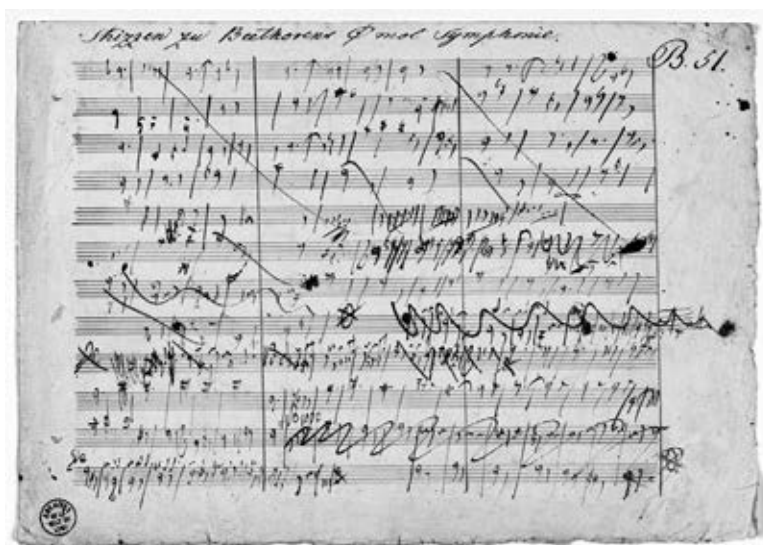 Skizzen zu Beethovens C mol Symphonie.
B. 51.